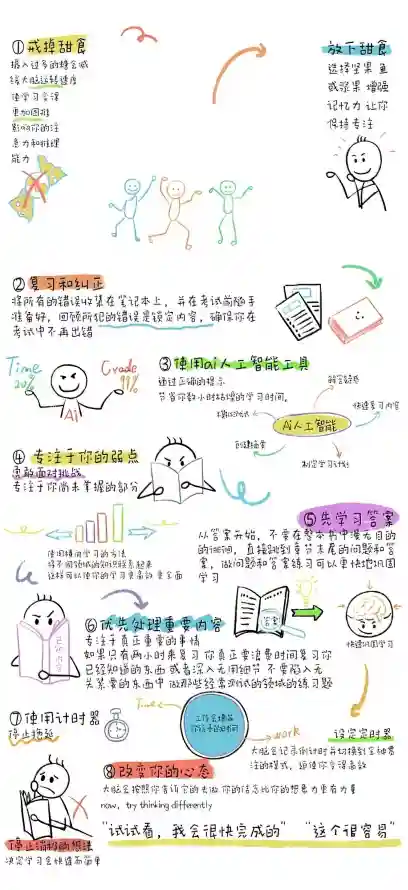 ①戒掉甜食
摄入过多的糖会减
缓大脑运转速度
使学习变得
更加困难
影响你的注
意力和推理
能力
放下甜食
选择坚果 鱼
或浆果 增强
记忆力 让你
保持专注
②复习和纠正
将所有的错误收集在笔记本上，并在考试前随手
准备好，回顾所犯的错误是锁定内容，确保你在
考试中不再出错
Time
20%
Grade
99%
Ai
③使用ai人工智能工具
通过正确的提示
节省你数小时枯燥的学习时间。
模拟测试
解答疑惑
快速复习内容
Ai人工智能
创建
制定学习计划
④专注于你的弱点
勇敢面对挑战
专注于你尚未掌握的部分
⑤先学习答案
从答案开始，不要在整本书中漫无目的
的徘徊，直接跳到章节末尾的问题和答
案，做问题和答案练习可以更快地巩固
学习
答案
快速巩固学习
使用横向学习的方法
将不同领域的知识联系起来
这样可以使你的学习更高效 更全面
⑥优先处理重要内容
专注于真正重要的事情
如果只有两小时来复习 你真正要浪费时间复习你
已经知道的东西 或者深入无用细节 不要陷入无
关紧要的东西中 做那些经常测试的领域的练习题
⑦使用计时器
停止拖延
Time
work
设定定时器
大脑会记录倒计时并切换到全神贯
注的模式，迫使你变得高效
⑧改变你的心态
大脑会按照你告诉它的去做 你的信念比你的想象力更有力量
now, try thinking differently
停止消极的想法
决定学习会快速而简单
“试试看，我会很快完成的” “这个很容易”